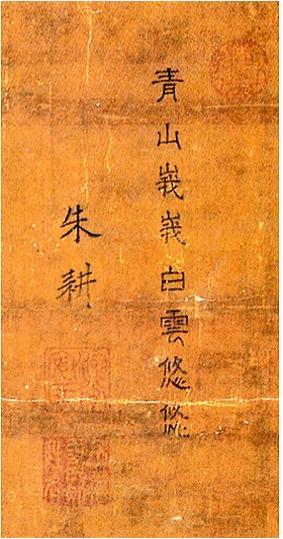 青山峩峩白雲悠悠
朱耕